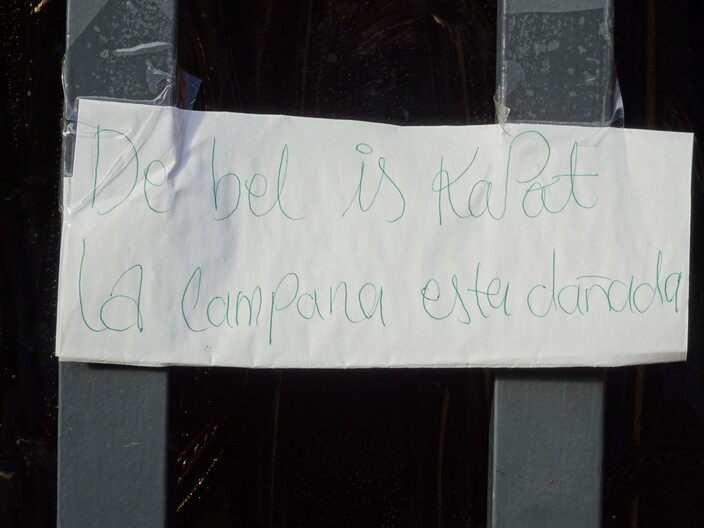 De bel is KaPot
La campana esta dañada